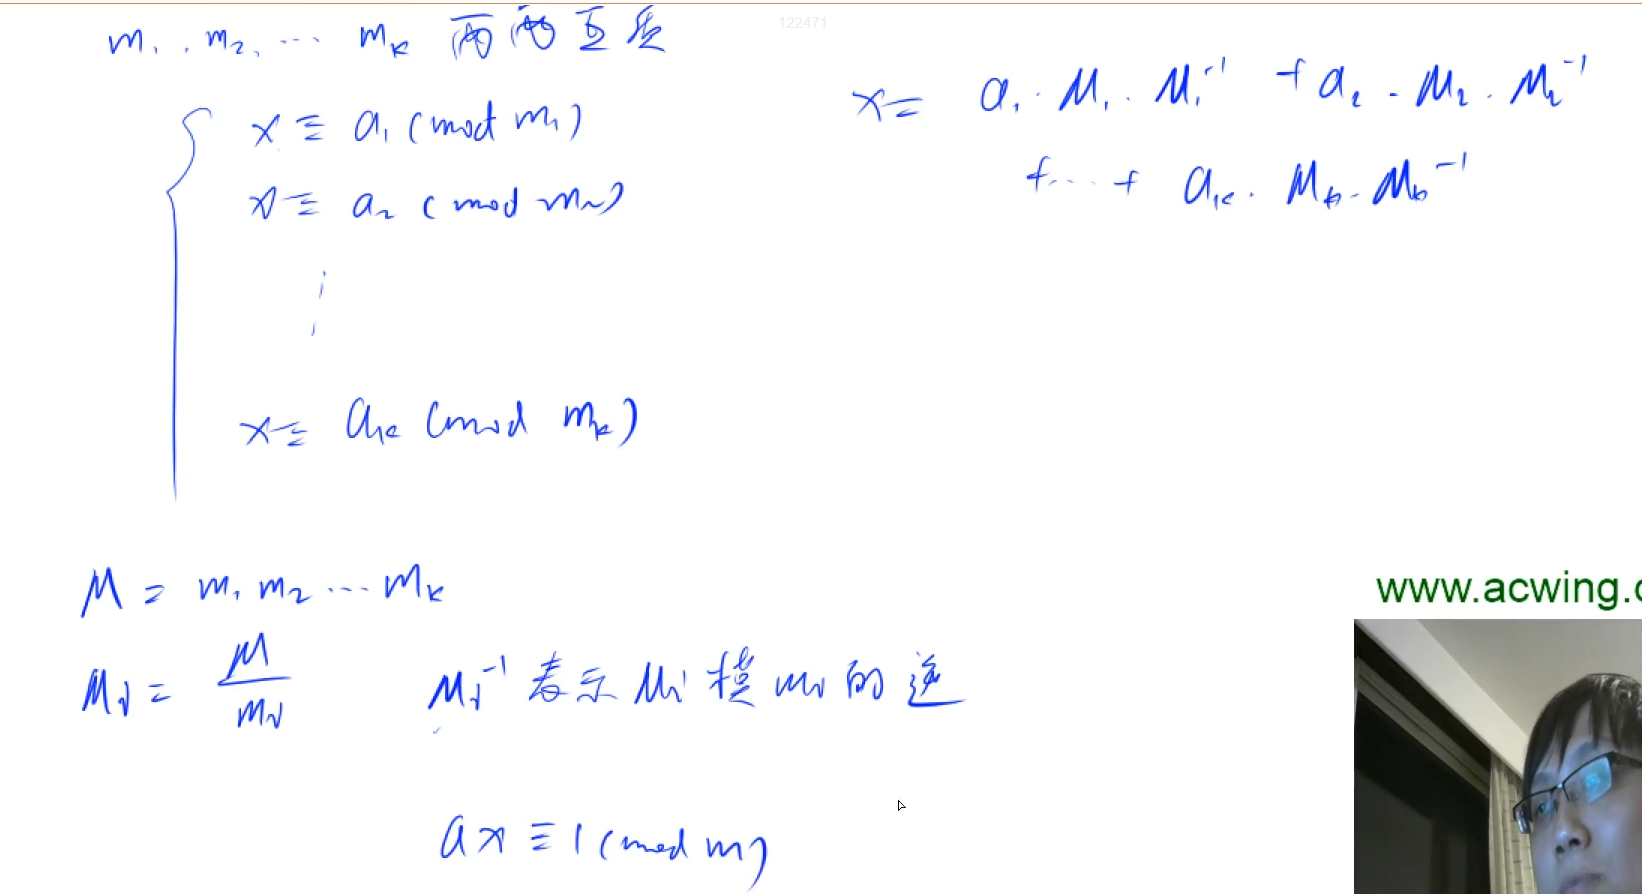 122471
m₁, m₂, … mₖ 两两互质
x ≡ a₁ (mod m₁)
x ≡ a₂ (mod m₂)
⋮
x ≡ aₖ (mod mₖ)
x = a₁·M₁·M₁⁻¹ + a₂·M₂·M₂⁻¹
+…+ aₖ·Mₖ·Mₖ⁻¹
M = m₁ m₂ … mₖ
Mᵢ = M/mᵢ
Mᵢ⁻¹ 表示 Mᵢ 模 mᵢ 的逆
ax ≡ 1 (mod m)
www.acwing.c